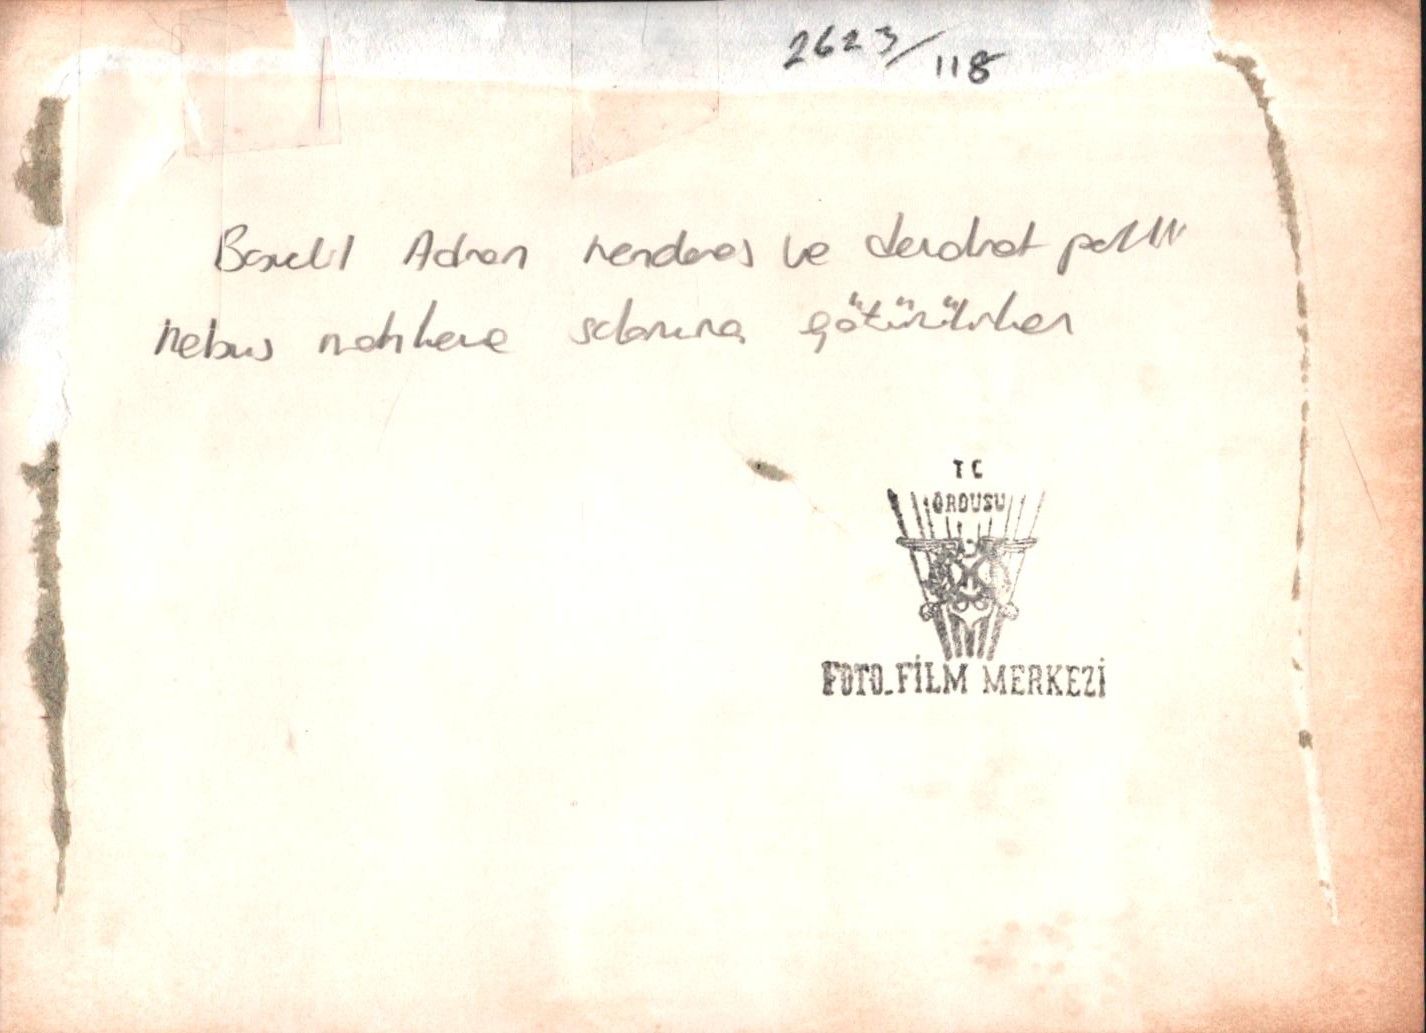 2623/118
Adnan Menderes ve demokrat partili
Mebus mahkeme salonuna götürülürken
T C
ORDUSU
FOTO-FİLM MERKEZİ